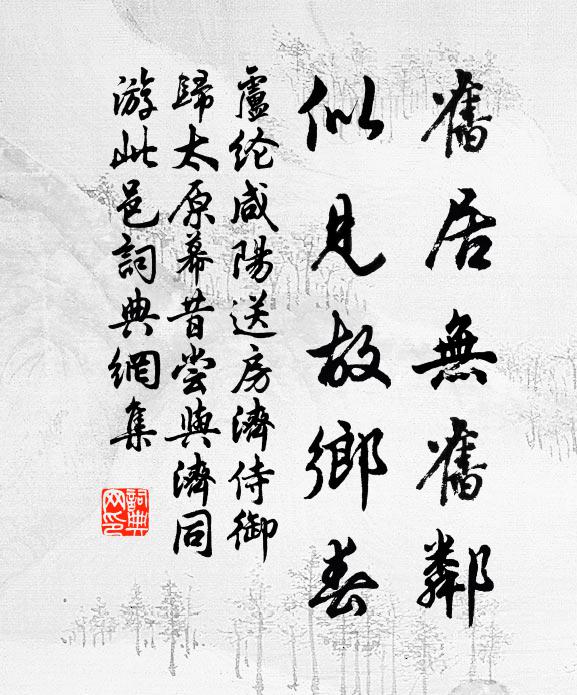 舊居無舊鄰
似見故鄉春
盧纶咸陽送房濟侍御
歸太原幕昔嘗與濟同
游此邑詞典網集
詞典
网印